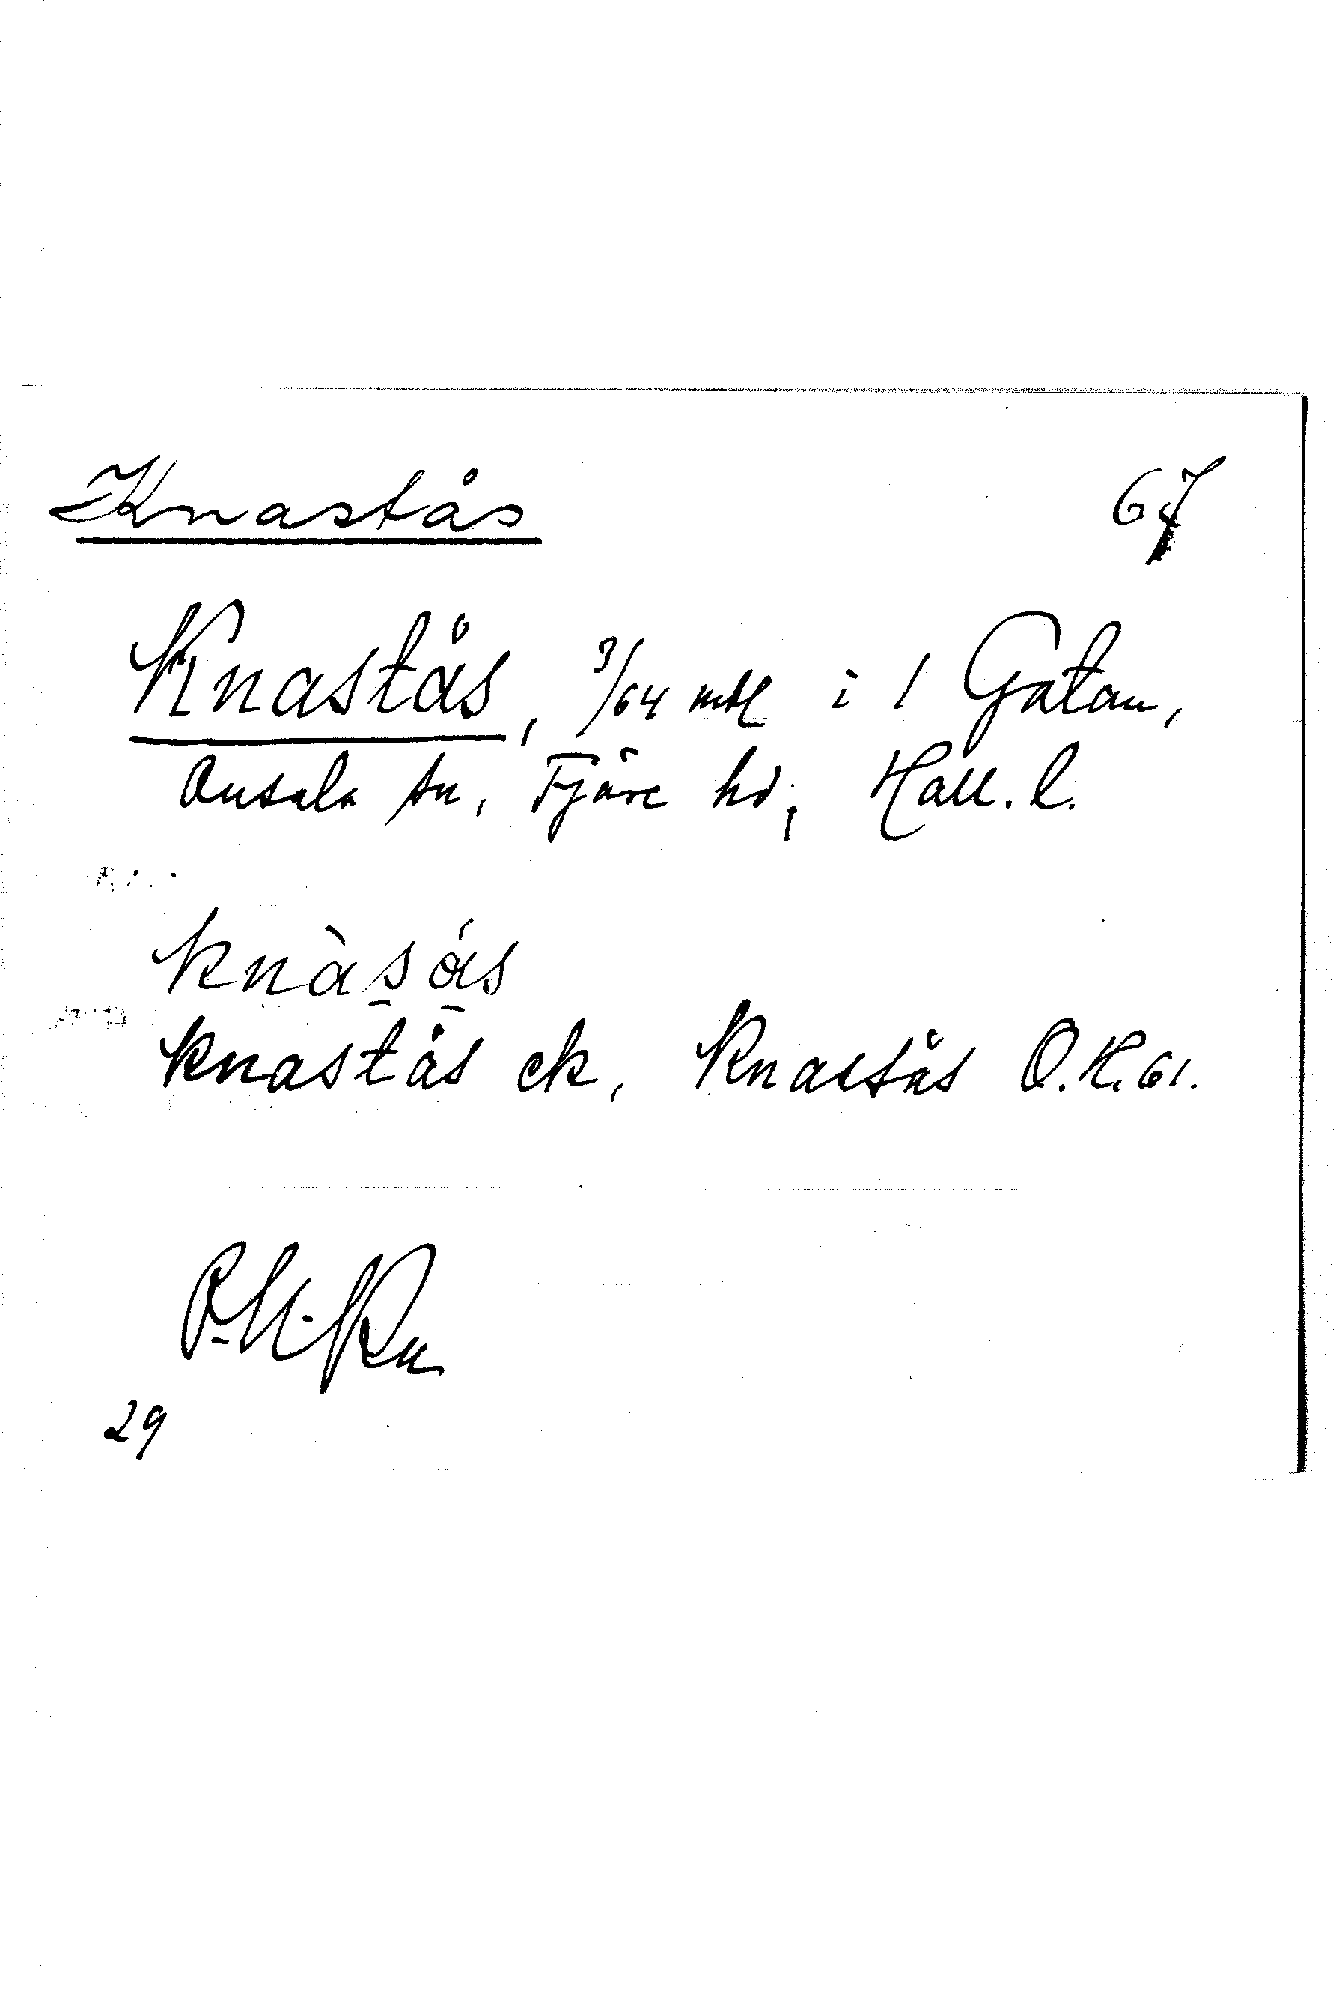 Knastås 67
Knastås, 3/64 mtl i 1 Gatan,
Onsala sn, Fjäre hd, Hall. l.
knàsås
knastås ek, Knastås O.K. 61.
29